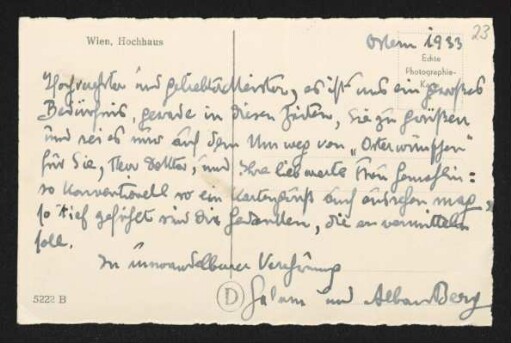 Wien, Hochhaus
Ostern 1933
23
Echte
Photographie-
Karte
Hochverehrter und geliebter Meister, es ist uns ein großes
Bedürfnis, gerade in diesen Zeiten, Sie zu grüßen
und sei es nur auf dem Umweg von „Osterwünschen"
für Sie, Herr Doktor, und Ihre liebwerte Frau Gemahlin:
so konventionell so ein Kartengruß auch aussehen mag,
so tief gefühlt sind die Gedanken, die er vermitteln
soll.
In unwandelbarer Verehrung
5222 B
D
Helene und Alban Berg